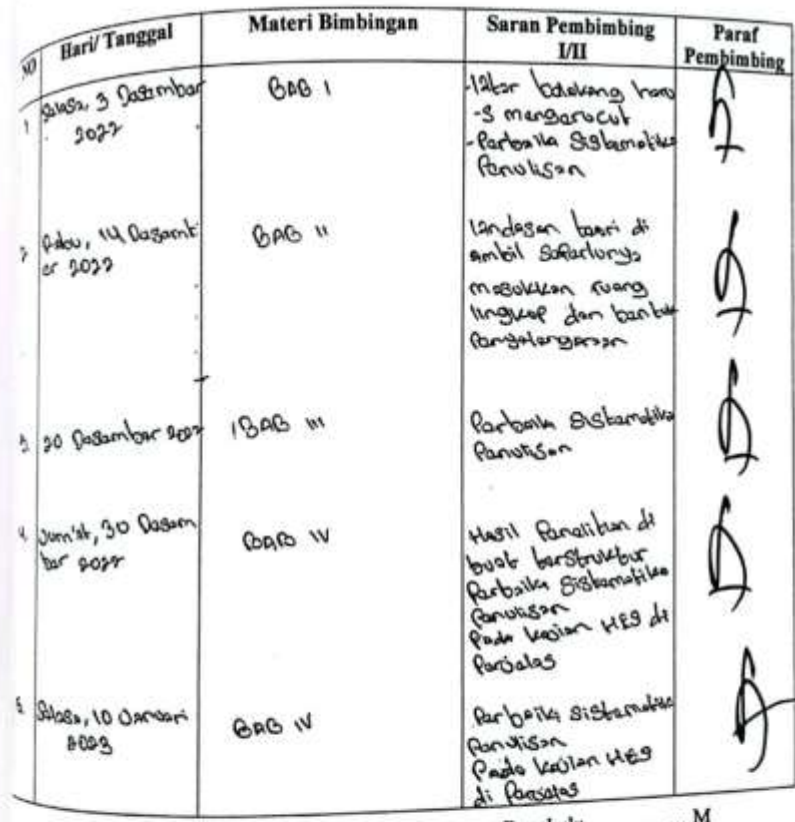 NO Hari/ Tanggal Materi Bimbingan Saran Pembimbing I/II Paraf Pembimbing
1 Selasa, 3 Desember 2022 BAB I
-latar belakang haru
-s mengerucut
-Perbaiki Sistematika
Penulisan
2 Rabu, 14 Desemb
er 2022 BAB II
landasan teori di
ambil seperlunya
masukkan ruang
lingkup dan bentuk
3 20 Desember 2022 BAB III
Perbaiki Sistematika
Penulisan
4 Jum'at, 30 Desem
ber 2022 BAB IV
Hasil Penelitian di
buat berstruktur
Perbaiki Sistematika
Penulisan
Pada kajian HES di
Perjelas
5 Selasa, 10 Januari
2023 BAB IV
Perbaiki sistematika
Penulisan
Pada kajian HES
di Perjelas
M